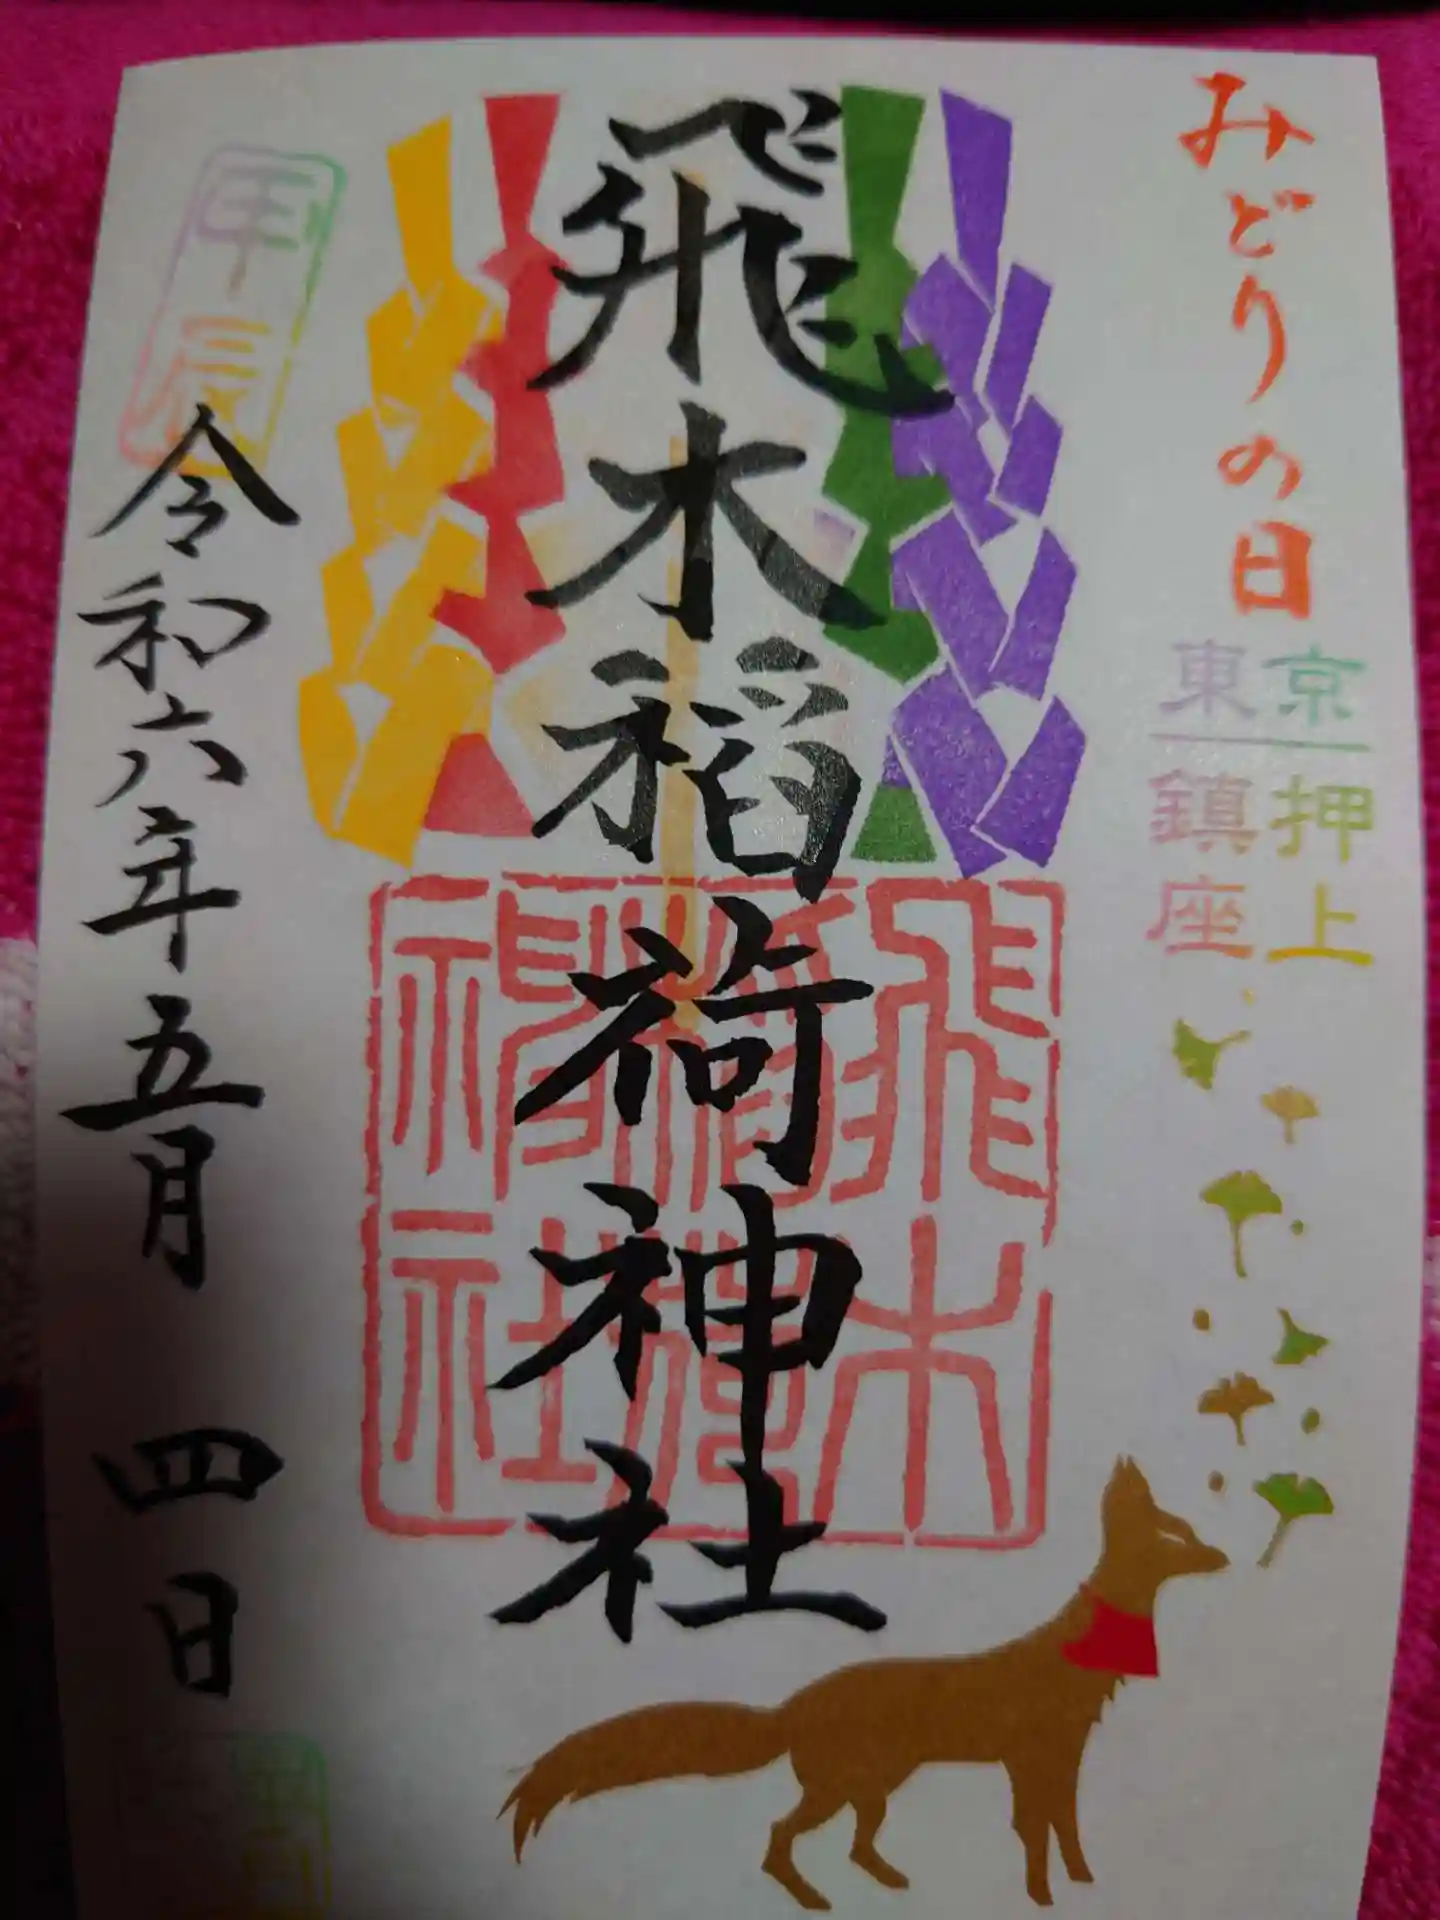 みどりの日
東京
押上
鎮座
飛木稲荷神社
飛木稲荷神社
甲辰
令和六年五月 四日